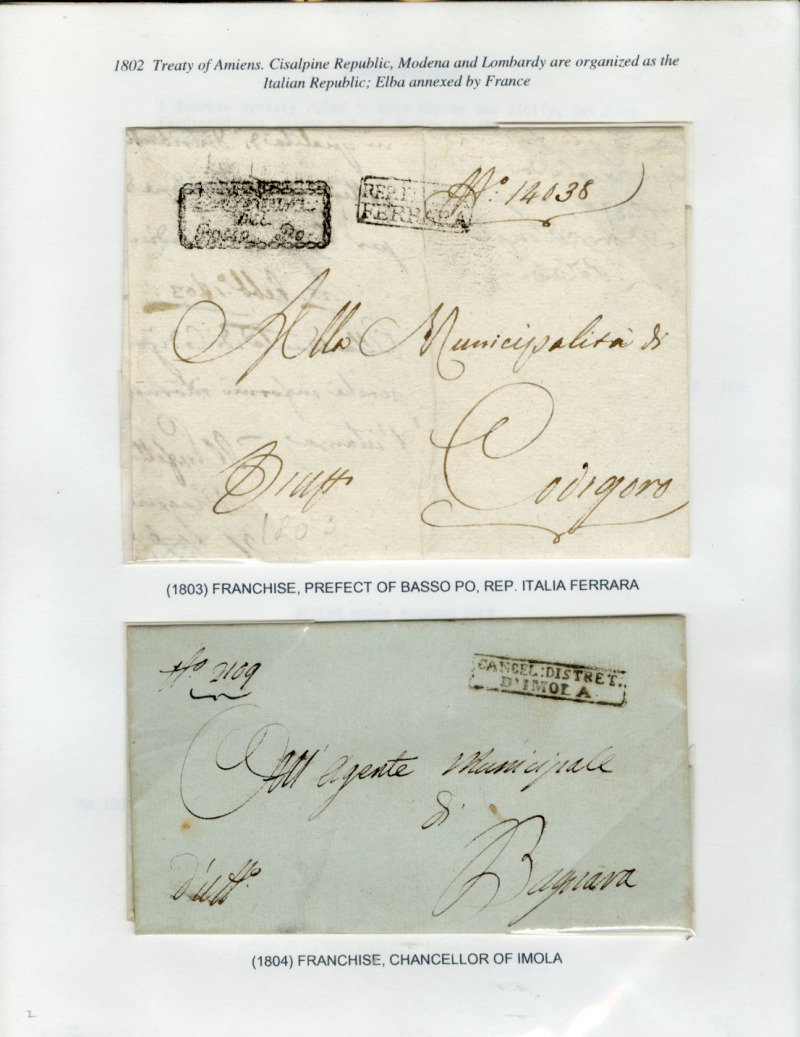 1802 Treaty of Amiens. Cisalpine Republic, Modena and Lombardy are organized as the
Italian Republic; Elba annexed by France
del
Basso Po.
REP. IT
FERRARA
N.º 14038
Alla Municipalità di
Codigoro
1803
(1803) FRANCHISE, PREFECT OF BASSO PO, REP. ITALIA FERRARA
Nº 2109
CANCEL: DISTRET.
D'IMOLA
All' Agente Municipale
di
Bagnara
(1804) FRANCHISE, CHANCELLOR OF IMOLA
2